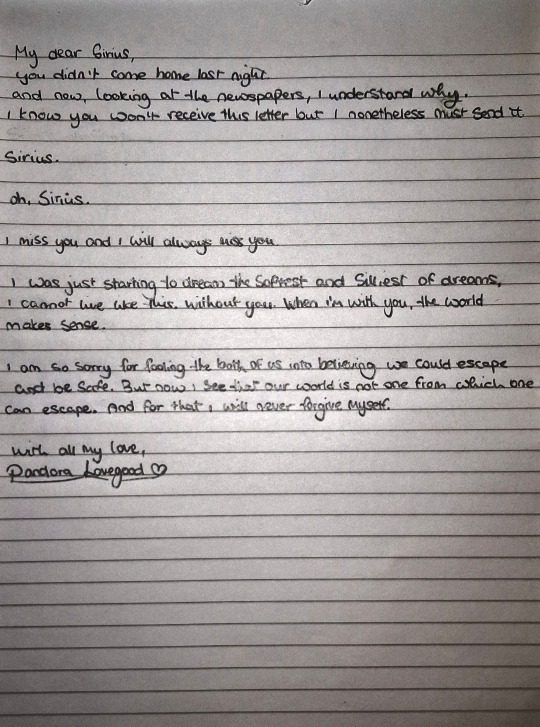 My dear Sirius,
you didn't come home last night.
and now, looking at the newspapers, I understand why.
I know you won't receive this letter but I nonetheless must send it.
Sirius.
oh, Sirius.
I miss you and I will always miss you.
I was just starting to dream the softest and silliest of dreams,
I cannot live like this. without you. When i'm with you, the world
makes sense.
I am so sorry for fooling the both of us into believing we could escape
and be safe. But now I see that our world is not one from which one
can escape. And for that I will never forgive myself.
with all my love,
Pandora Lovegood ♡